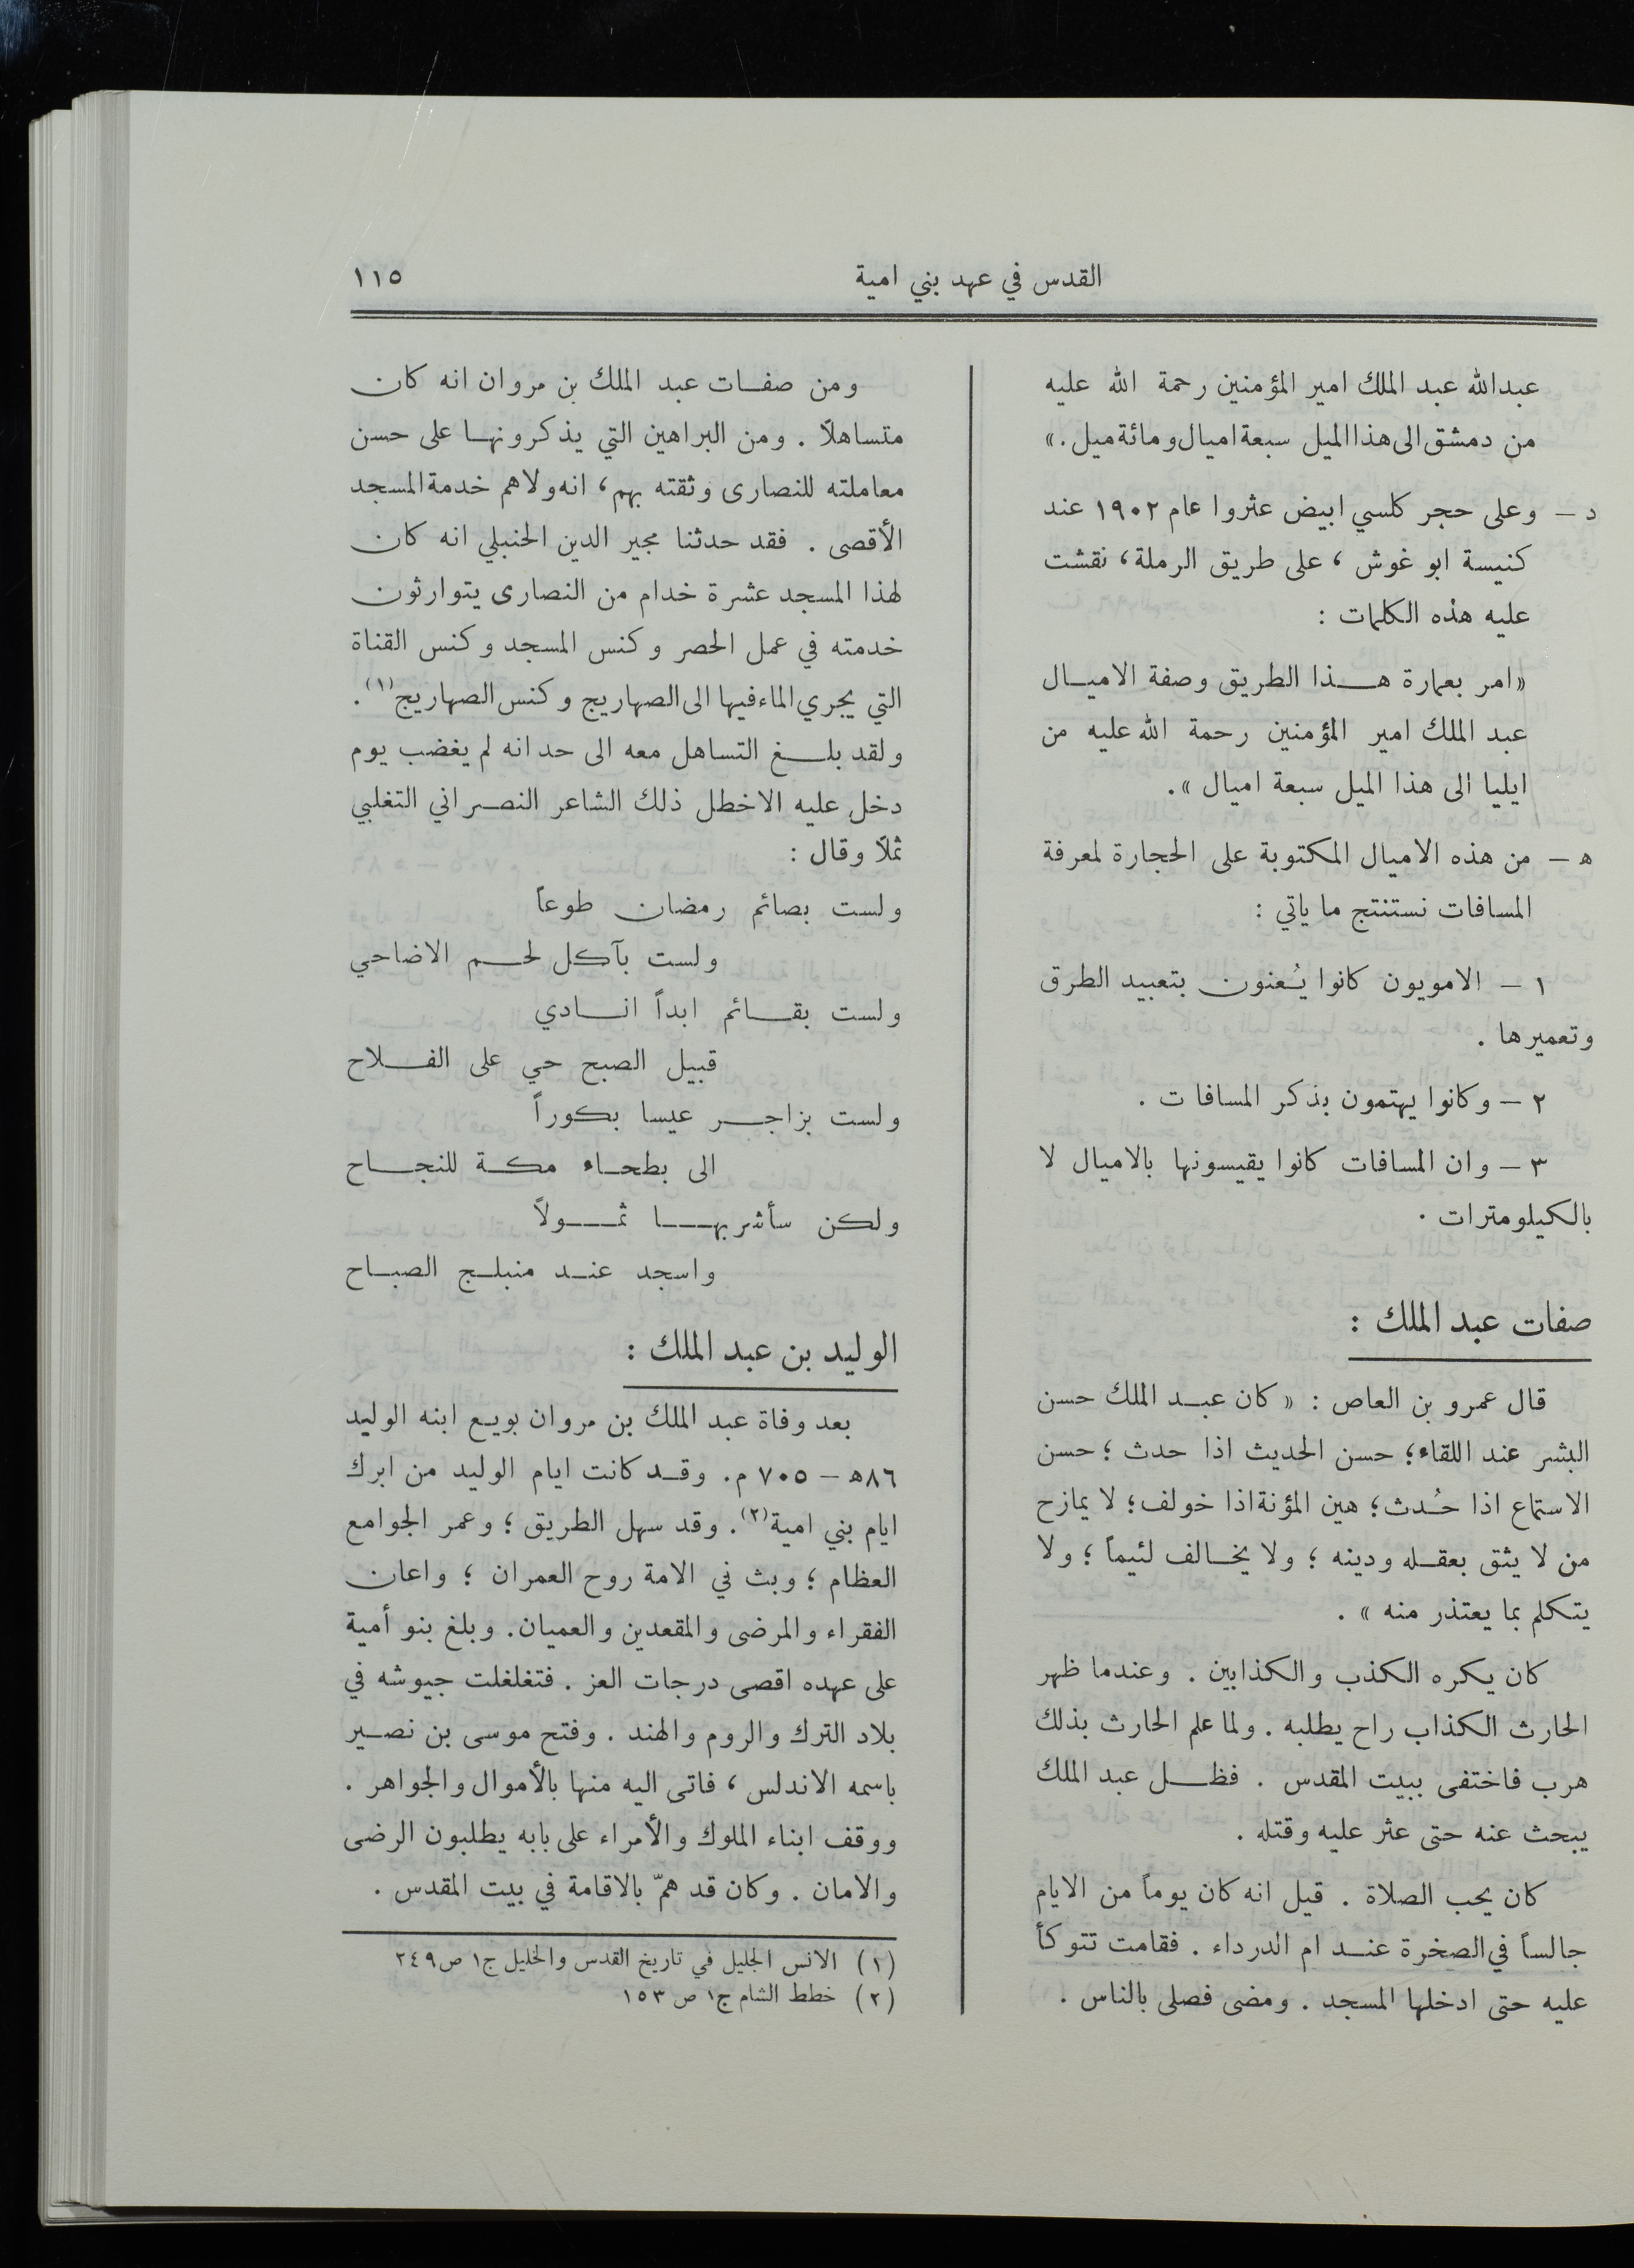 القدس في عهد بني امية
١١٥
عبدالله عبد الملك امير المؤمنين رحمة الله عليه
من دمشق الى هذا الميل سبعة اميال ومائة ميل.»
د – وعلى حجر كلسي ابيض عثروا عام ١٩٠٢ عند
كنيسة ابو غوش، على طريق الرملة، نقشت
عليه هذه الكلمات :
«امر بعمارة هذا الطريق وصفة الاميال
عبد الملك امير المؤمنين رحمة الله عليه من
ايليا الى هذا الميل سبعة اميال».
ه – من هذه الاميال المكتوبة على الحجارة لمعرفة
المسافات نستنتج ما ياتي :
١ – الامويون كانوا يُعنون بتعبيد الطرق
وتعميرها .
٢ – وكانوا يهتمون بذكر المسافات .
٣ – وان المسافات كانوا يقيسونها بالاميال لا
بالكيلومترات .
صفات عبد الملك :
قال عمرو بن العاص : «كان عبد الملك حسن
البشر عند اللقاء؛ حسن الحديث اذا حدث؛ حسن
الاستماع اذا حُدث؛ هين المؤنة اذا خولف؛ لا يمازح
من لا يثق بعقله ودينه ؛ ولا يخالف لئيماً ؛ ولا
يتكلم بما يعتذر منه» .
كان يكره الكذب والكذابين . وعندما ظهر
الحارث الكذاب راح يطلبه . ولما علم الحارث بذلك
هرب فاختفى ببيت المقدس . فظل عبد الملك
يبحث عنه حتى عثر عليه وقتله .
كان يحب الصلاة . قيل انه كان يوماً من الايام
جالساً في الصخرة عند ام الدرداء . فقامت تتوكأ
عليه حتى ادخلها المسجد . ومضى فصلى بالناس .
ومن صفات عبد الملك بن مروان انه كان
متساهلاً . ومن البراهين التي يذكرونها على حسن
معاملته للنصارى وثقته بهم، انه ولاهم خدمة المسجد
الأقصى . فقد حدثنا مجير الدين الحنبلي انه كان
لهذا المسجد عشرة خدام من النصارى يتوارثون
خدمته في عمل الحصر وكنس المسجد وكنس القناة
التي يجري الماء فيها الى الصهاريج وكنس الصهاريج(١).
ولقد بلغ التساهل معه الى حد انه لم يغضب يوم
دخل عليه الاخطل ذلك الشاعر النصراني التغلبي
ثملاً وقال :
ولست بصائم رمضان طوعاً
ولست بآكل لحم الاضاحي
ولست بقائم ابداً انادي
قبيل الصبح حي على الفلاح
ولست بزاجر عيسا بكوراً
الى بطحاء مكة للنجاح
ولكن سأشربها ثمولاً
واسجد عند منبلج الصباح
الوليد بن عبد الملك :
بعد وفاة عبد الملك بن مروان بويع ابنه الوليد
٨٦ه – ٧٠٥ م. وقد كانت ايام الوليد من ابرك
ايام بني امية(٢). وقد سهل الطريق ؛ وعمر الجوامع
العظام ؛ وبث في الامة روح العمران ؛ واعان
الفقراء والمرضى والمقعدين والعميان. وبلغ بنو أمية
على عهده اقصى درجات العز . فتغلغلت جيوشه في
بلاد الترك والروم والهند . وفتح موسى بن نصير
باسمه الاندلس، فاتى اليه منها بالأموال والجواهر .
ووقف ابناء الملوك والأمراء على بابه يطلبون الرضى
والامان . وكان قد همّ بالاقامة في بيت المقدس .
(١) الانس الجليل في تاريخ القدس والخليل ج١ ص٢٤٩
(٢) خطط الشام ج١ ص ١٥٣